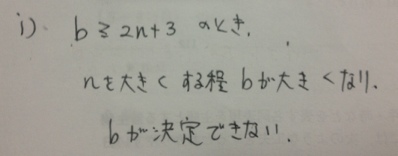 i) b≧2n+3 のとき、
nを大きくする程 bが大きくなり、
bが決定できない.